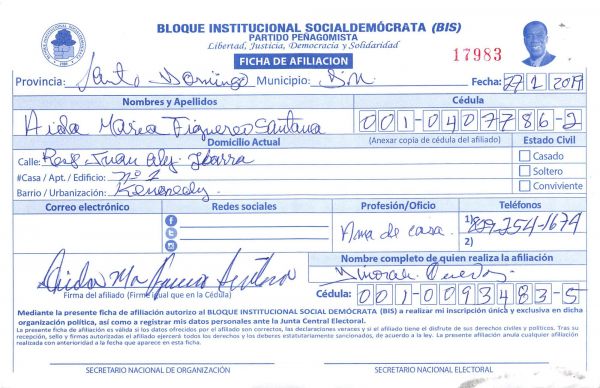 BLOQUE INSTITUCIONAL SOCIALDEMÓCRATA (BIS)
PARTIDO PEÑAGOMISTA
Libertad, Justicia, Democracia y Solidaridad
FICHA DE AFILIACION
17983
Provincia: Santo Domingo Municipio: D.N. Fecha: 29/1/2019
Nombres y Apellidos Cédula
Aida Maria Figuereo Santana 001-0407786-2
Domicilio Actual (Anexar copia de cédula del afiliado) Estado Civil
Calle: Res. Juan Alej. Ibarra Casado
#Casa / Apt. / Edificio: nº 2 Soltero
Barrio / Urbanización: Kennedy Conviviente
Correo electrónico Redes sociales Profesión/Oficio Teléfonos
Ama de casa. 1) 809-254-1674
2)
Aida Ma Santana
Nombre completo de quien realiza la afiliación
Firma del afiliado (Firme igual que en la Cédula)
Cédula: 001-0093483-5
Mediante la presente ficha de afiliación autorizo al BLOQUE INSTITUCIONAL SOCIAL DEMÓCRATA (BIS) a realizar mi inscripción única y exclusiva en dicha
organización política, así como a registrar mis datos personales ante la Junta Central Electoral.
La presente ficha de afiliación es válida si los datos ofrecidos por el afiliado son correctos, las declaraciones veraces y si el afiliado tiene el disfrute de sus derechos civiles y políticos. Tras su
recepción, sello y firmas autorizadas el afiliado ejercerá todos los derechos y los deberes estatutariamente sancionados, de acuerdo a la ley. La presente afiliación anula cualquier afiliación
realizada con anterioridad a la fecha que aparece en esta ficha.
SECRETARIO NACIONAL DE ORGANIZACIÓN SECRETARIO NACIONAL ELECTORAL